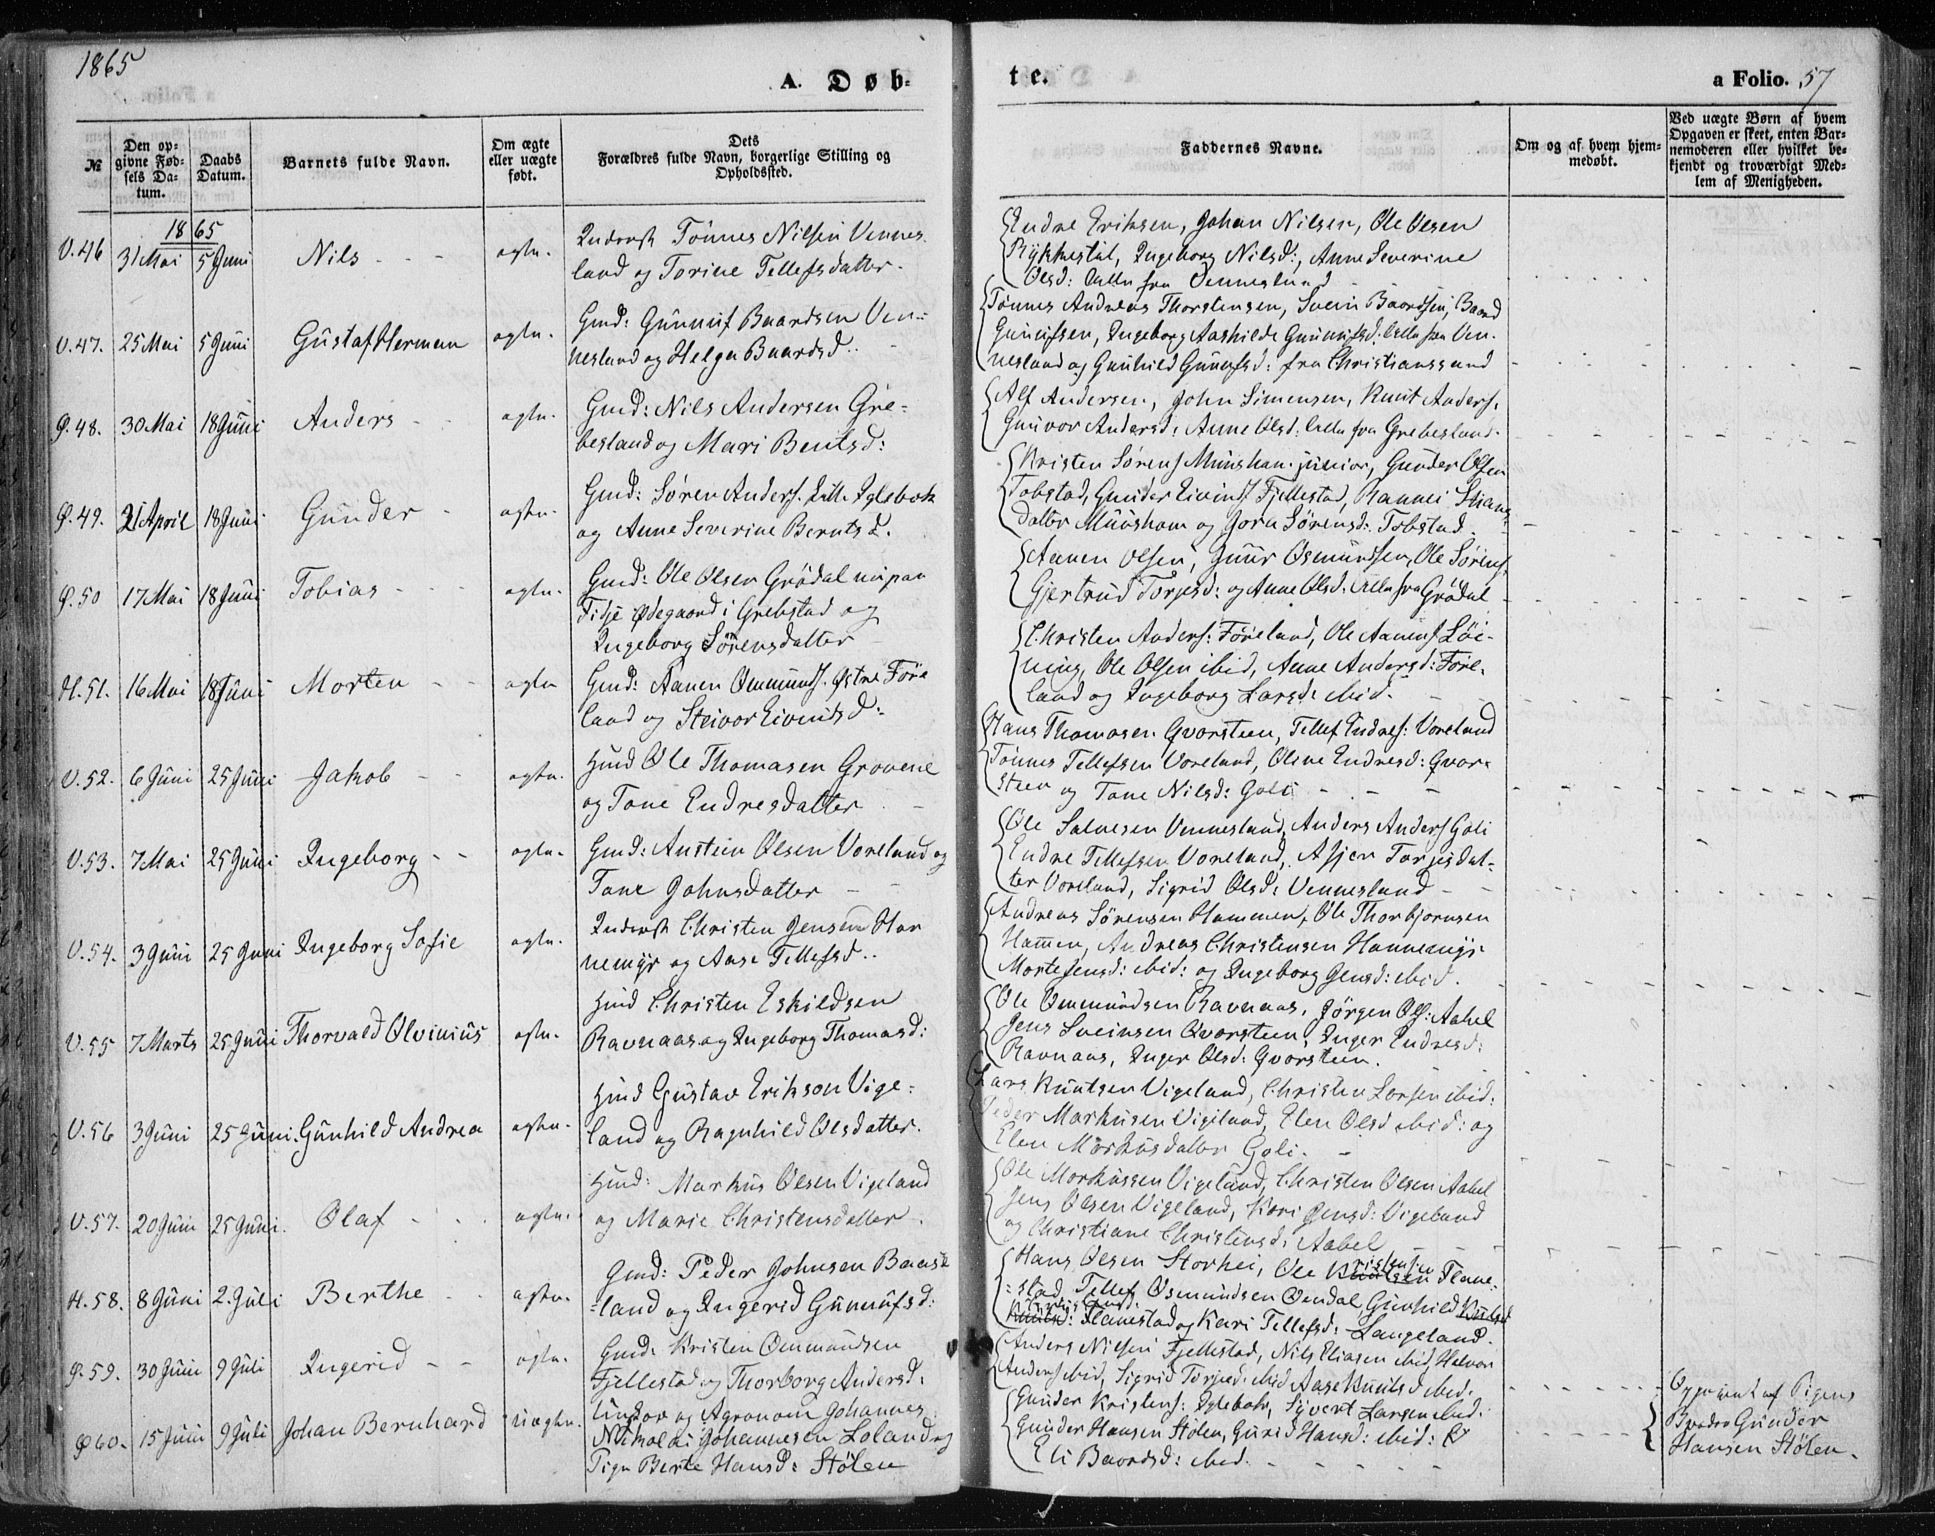 1865
A. Døb-
te.
a Folio. 57
№
Den op-
givne Fød-
sels Da-
tum.
Daabs
Datum.
Barnets fulde Navn.
Om ægte
eller uægte
født.
Dets
Forældres fulde Navn, borgerlige Stilling og
Opholdssted.
Faddernes Navne.
Om og af hvem hjem-
medøbt.
Ved uægte Børn af hvem
Opgaven er skeet, enten Bar-
nemoderen eller hvilket be-
kjendt og troværdigt Med-
lem af Menigheden.
1865
V.46 31 Mai 5 Juni Nils agte. Inderst Tönnes Nilsen Vennes
land og Torine Tellefsdatter.
Endre Eriksen, Johan Nilsen, Ole Olsen
Rykkestöl, Ingeborg Nilsd:, Anne Severine
Olsd: alle fra Vennesland
V.47. 25 Mai 5 Juni Gustaf Herman agte. Gmd: Gunnuf Baardsen Ven-
nesland og Helga Baardsd..
Tönnes Andreas Thorstensen, Svein Baardsen, Baard
Gunufsen, Ingeborg Aashilde Gunnufsd: alle fra Ven-
nesland og Gunhild Gunufsd: fra Christianssand
Ø.48. 30 Mai 18 Juni Anders agte. Gmd: Nils Andersen Gre-
besland og Mari Bentsd:
Alf Andersen, John Simensen, Knut Anders.
Gunvor Andersd: Anne Olsd: alle fra Grebesland.
Ø.49. 21 April 18 Juni Gunder agte. Gmd: Sören Anders. Lille Iglebæk
og Anne Severine Berntsd.
Kristen Sörens. junior, Gunder Olsen
Tobstad, Gunder Eivinds. Fjellestad, Rannei
datter og Jora Sörensd: Tobstad.
Ø.50 17 Mai 18 Juni Tobias agte. Gmd: Ole Olsen Grödal nu paa
Tidje Ødegaard i Grebstad og
Ingeborg Sörensdatter
Aanen Olsen, Osmundsen, Ole Sörens.
Gjertrud Torjesd: og Anne Olsd: Alle fra Grödal
H.51. 16 Mai 18 Juni Morten agte Gmd: Aanen Ommunds. Østre Före
land og Steivor Eivindsd:
Christen Anders: Föreland, Ole Aanens. Löi-
ning, Ole Olsen ibid, Anne Andersd: Före-
land og Ingeborg Larsd: ibid.
V.52. 6 Juni 25 Juni Jakob agte. Hmd Ole Thomasen Grovene
og Tone Endresdatter
Hans Thomasen Qvorsteen, Tellef Endres: Voreland
Tönnes Tellefsen Voreland, Oline Endresd: Qvor-
steen og Tone Nilsd: Goli
V.53. 7 Mai 25 Juni Ingeborg agte. Gmd: Austein Olsen Voreland og
Tone Johnsdatter
Ole Salvesen Vennesland, Anders Anders. Goli
Endre Tellefsen Voreland, Asjer Torjesdat-
ter Voreland, Sigrid Olsd: Vennesland
V.54. 3 Juni 25 Juni Ingeborg Sofie agte. Inderst Christen Jensen Han
nemyr og Aase Tellefsd..
Andreas Sörensen Hammen, Ole Thorbjornsen
Hammen, Andreas Christensen Hannemyr.
Morte Jensd: ibid: og Ingeborg Jensd: ibid.
V.55 7 Marts 25 Juni Thorvald Olvinius agte. Hmd Christen Eskildsen
Ravnaas og Ingeborg Thomasd:
Ole Ommundsen Ravnaas, Jörgen Ols: Aabel
Jens Sveinsen Qvorsteen, Inger Endresd:
Ravnaas, Inger Olsd: Qvorsteen.
V.56 3 Juni 25 Juni. Gunhild Andrea agte. Hmd Gustav Erikson Vige-
land og Ragnhild Olsdatter.
Lars Knutsen Vigeland, Christen Larsen ibid:
Peder Markusen Vigeland, Elen Olsd ibid: og
Elen Markusdatter Goli.
V.57. 20 Juni 25 Juni. Olaf agte. Hmd: Markus Olsen Vigeland
og Marie Christensdatter.
Ole Morkussen Vigeland, Christen Olsen Aabel
Jens Olsen Vigeland, Kari Jensd: Vigeland
og Christiane Christensd: Aabel
H.58. 8 Juni 2. Juli Berthe agte. Gmd: Peder Johnsen Baase
=land og Ingerid Gunnufsd:
Hans Olsen Storhei, Ole Kristensen Flane-
=stad, Tellef Osmundsen Omdal, Gunhild
Flanestad og Kari Tellefsd: Langeland.
Ø.59. 30 Juni 9 Juli Ingerid agte. Gmd. Kristen Ommundsen
Fjellestad og Thorborg Andersd:
Anders Nilsen Fjellestad, Nils Eliasen ibid, Halvor
Anders ibid, Sigrid Torjesd: ibid Aase Knutsd ibid.
Ø60. 15 Juni 9 Juli Johan Bernhard uægte. Ungkar og Agronom Johannes
Nikolai Johannesen Loland og
Pige Berte Hansd: Stölen
Gunder Kristens: Iglebæk, Syvert Larsen ibid.
Gunder Hansen Stölen, Gurid Hansd: ibid: &
Eli Baardsd: ibid.
Opgivet af Pigens
Broder Gunder
Hansen Stölen.